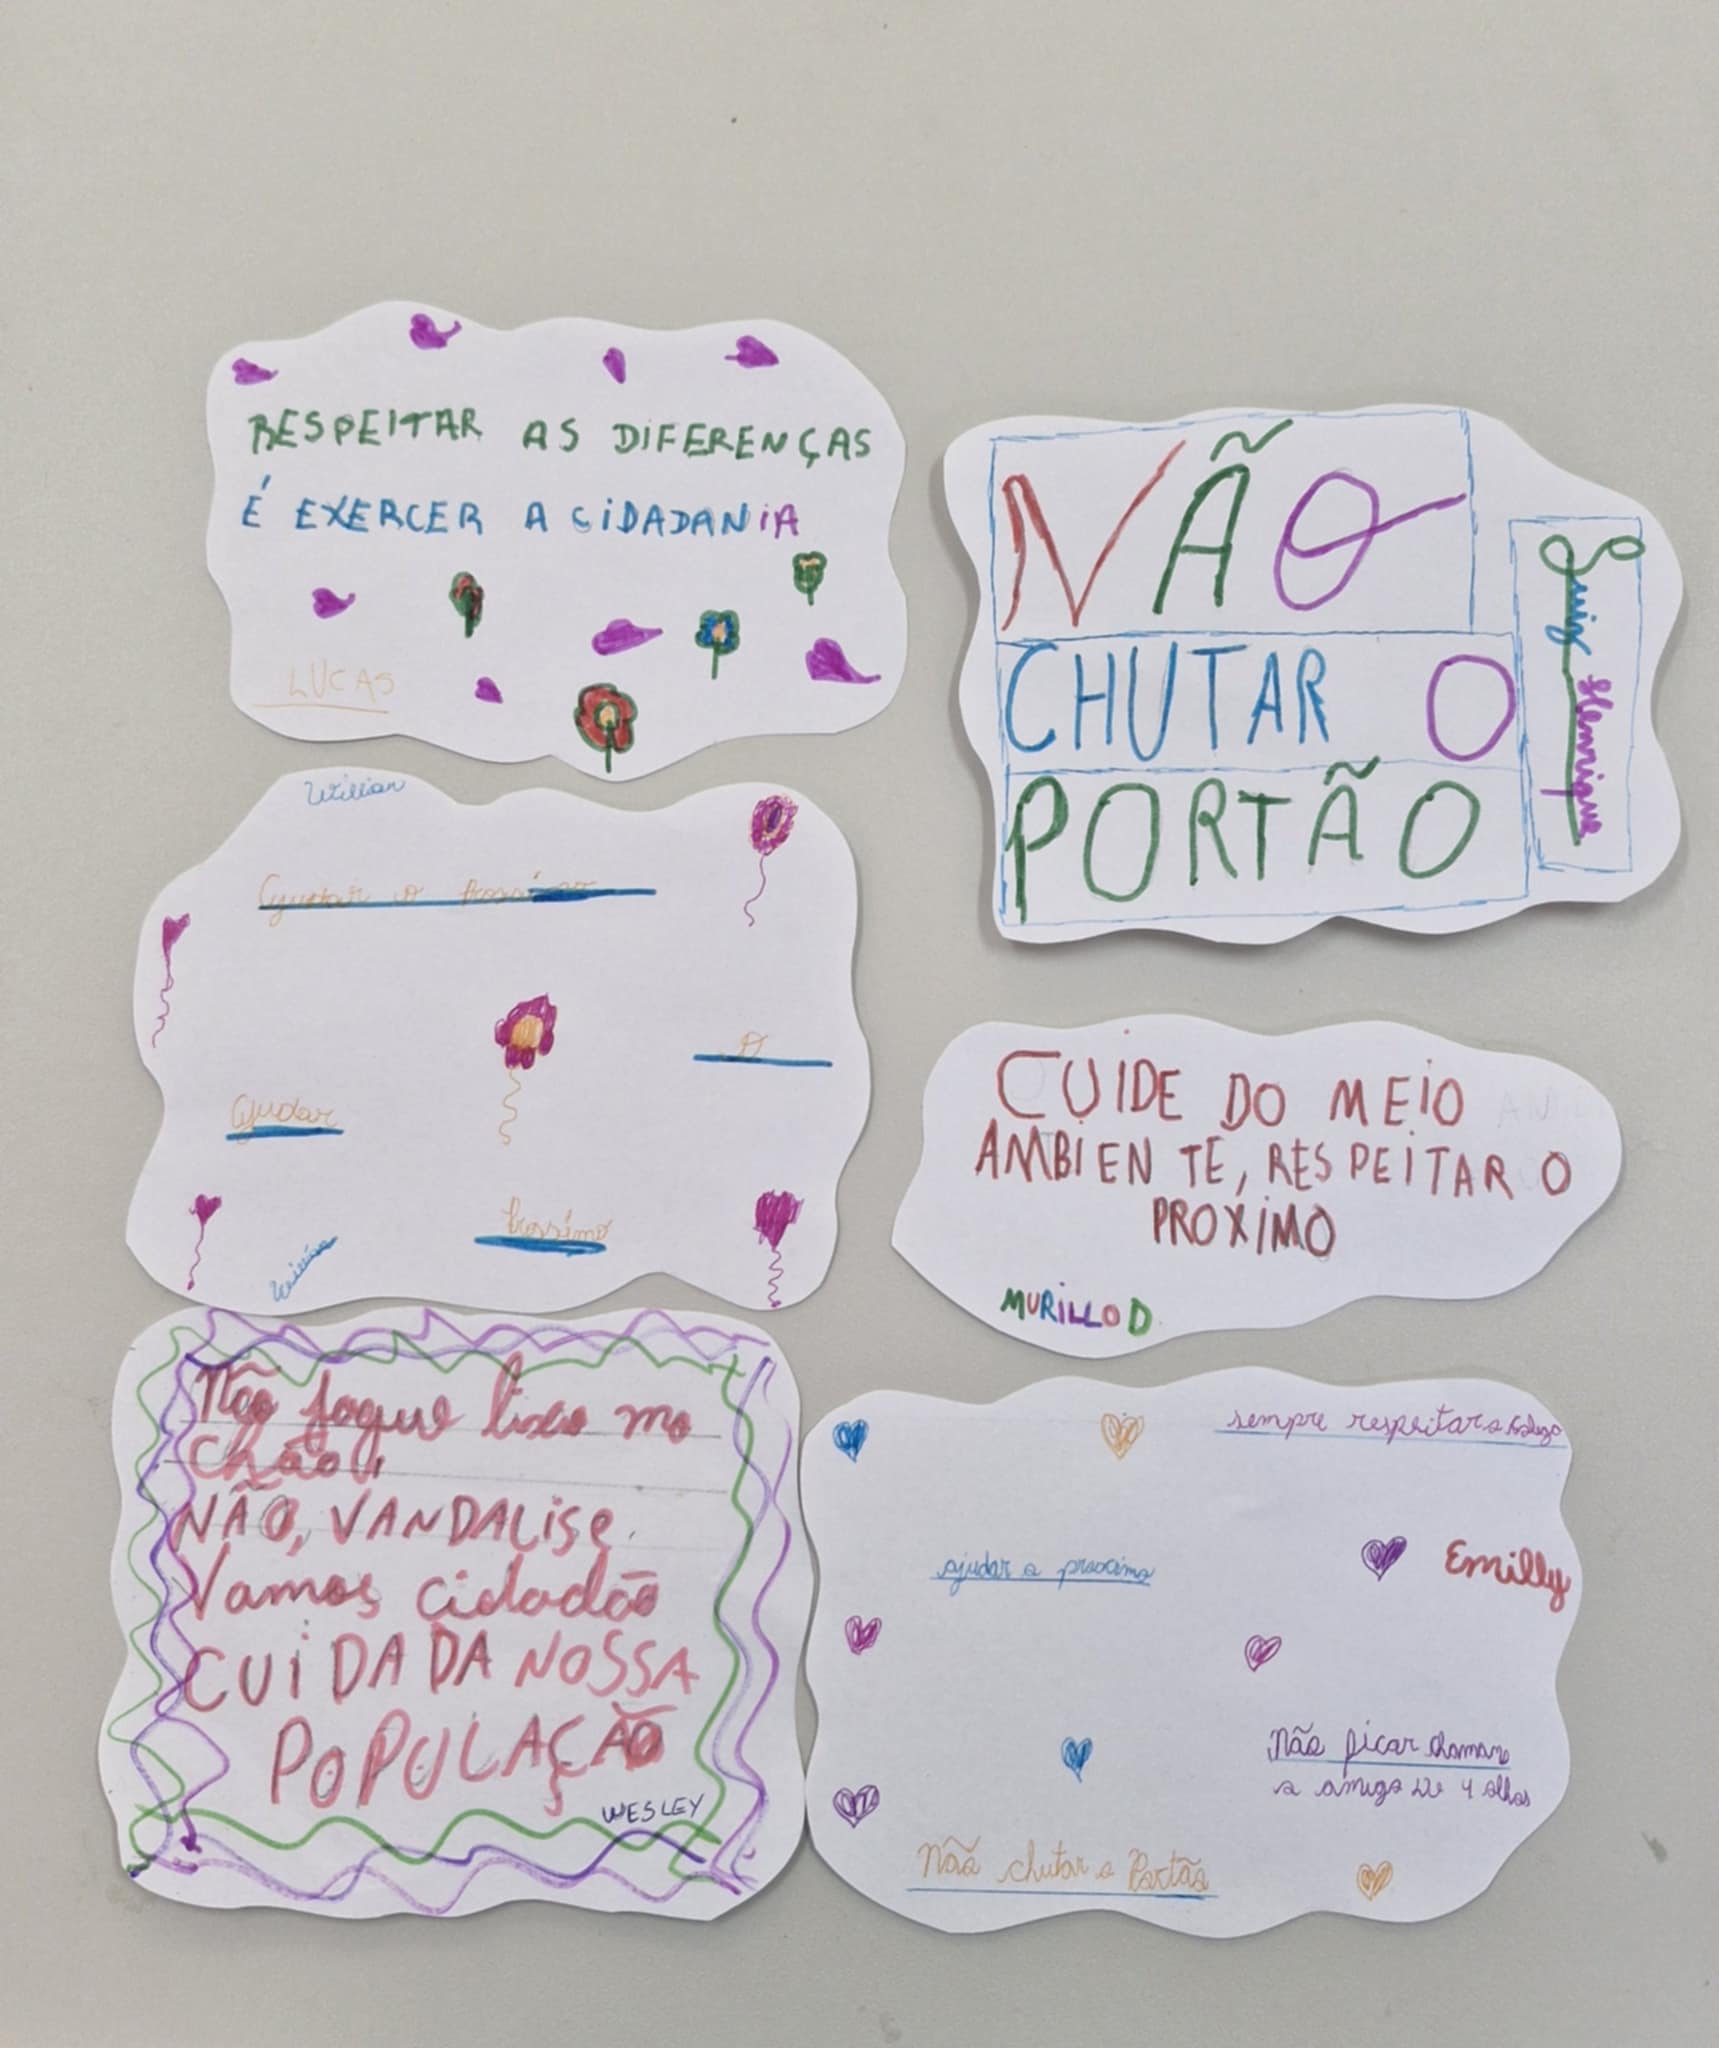 RESPEITAR AS DIFERENÇAS
É EXERCER A CIDADANIA
LUCAS
NÃO
CHUTAR O
PORTÃO
Luiz Henrique
Willian
Ajudar o
o
Ajudar
possimo
CUIDE DO MEIO
AMBIENTE, RESPEITAR O
PROXIMO
MURILLO D
Não jogue lixo no
chão,
NÃO, VANDALISE.
Vamos cidadão
CUIDA DA NOSSA
POPULAÇÃO
WESLEY
sempre respeitar o
ajudar o proximo
Emilly
Não ficar chamano
o amigo de 4 olhos
Não chutar o Portão